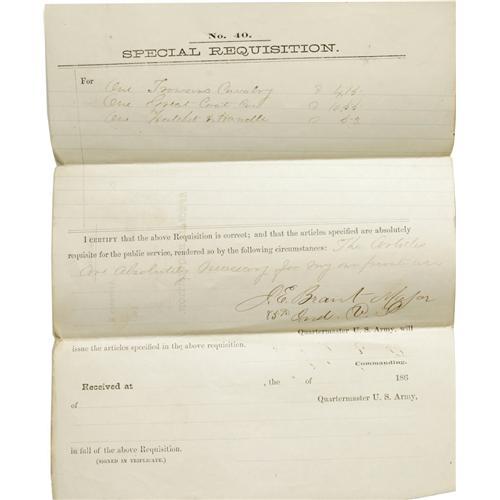 No. 40.
SPECIAL REQUISITION.
For
One Trowsers Cavalry
One Great Coat
One Hatchet & Handle
I CERTIFY that the above Requisition is correct; and that the articles specified are absolutely
requisite for the public service, rendered so by the following circumstances: The Articles
are Absolutely Necessary for my own private use
J. E. Brant Major
85th Ind. V.
Quartermaster U. S. Army, will
issue the articles specified in the above requisition.
Commanding.
Received at , the of 186
of Quartermaster U. S. Army,
in full of the above Requisition.
(SIGNED IN TRIPLICATE.)